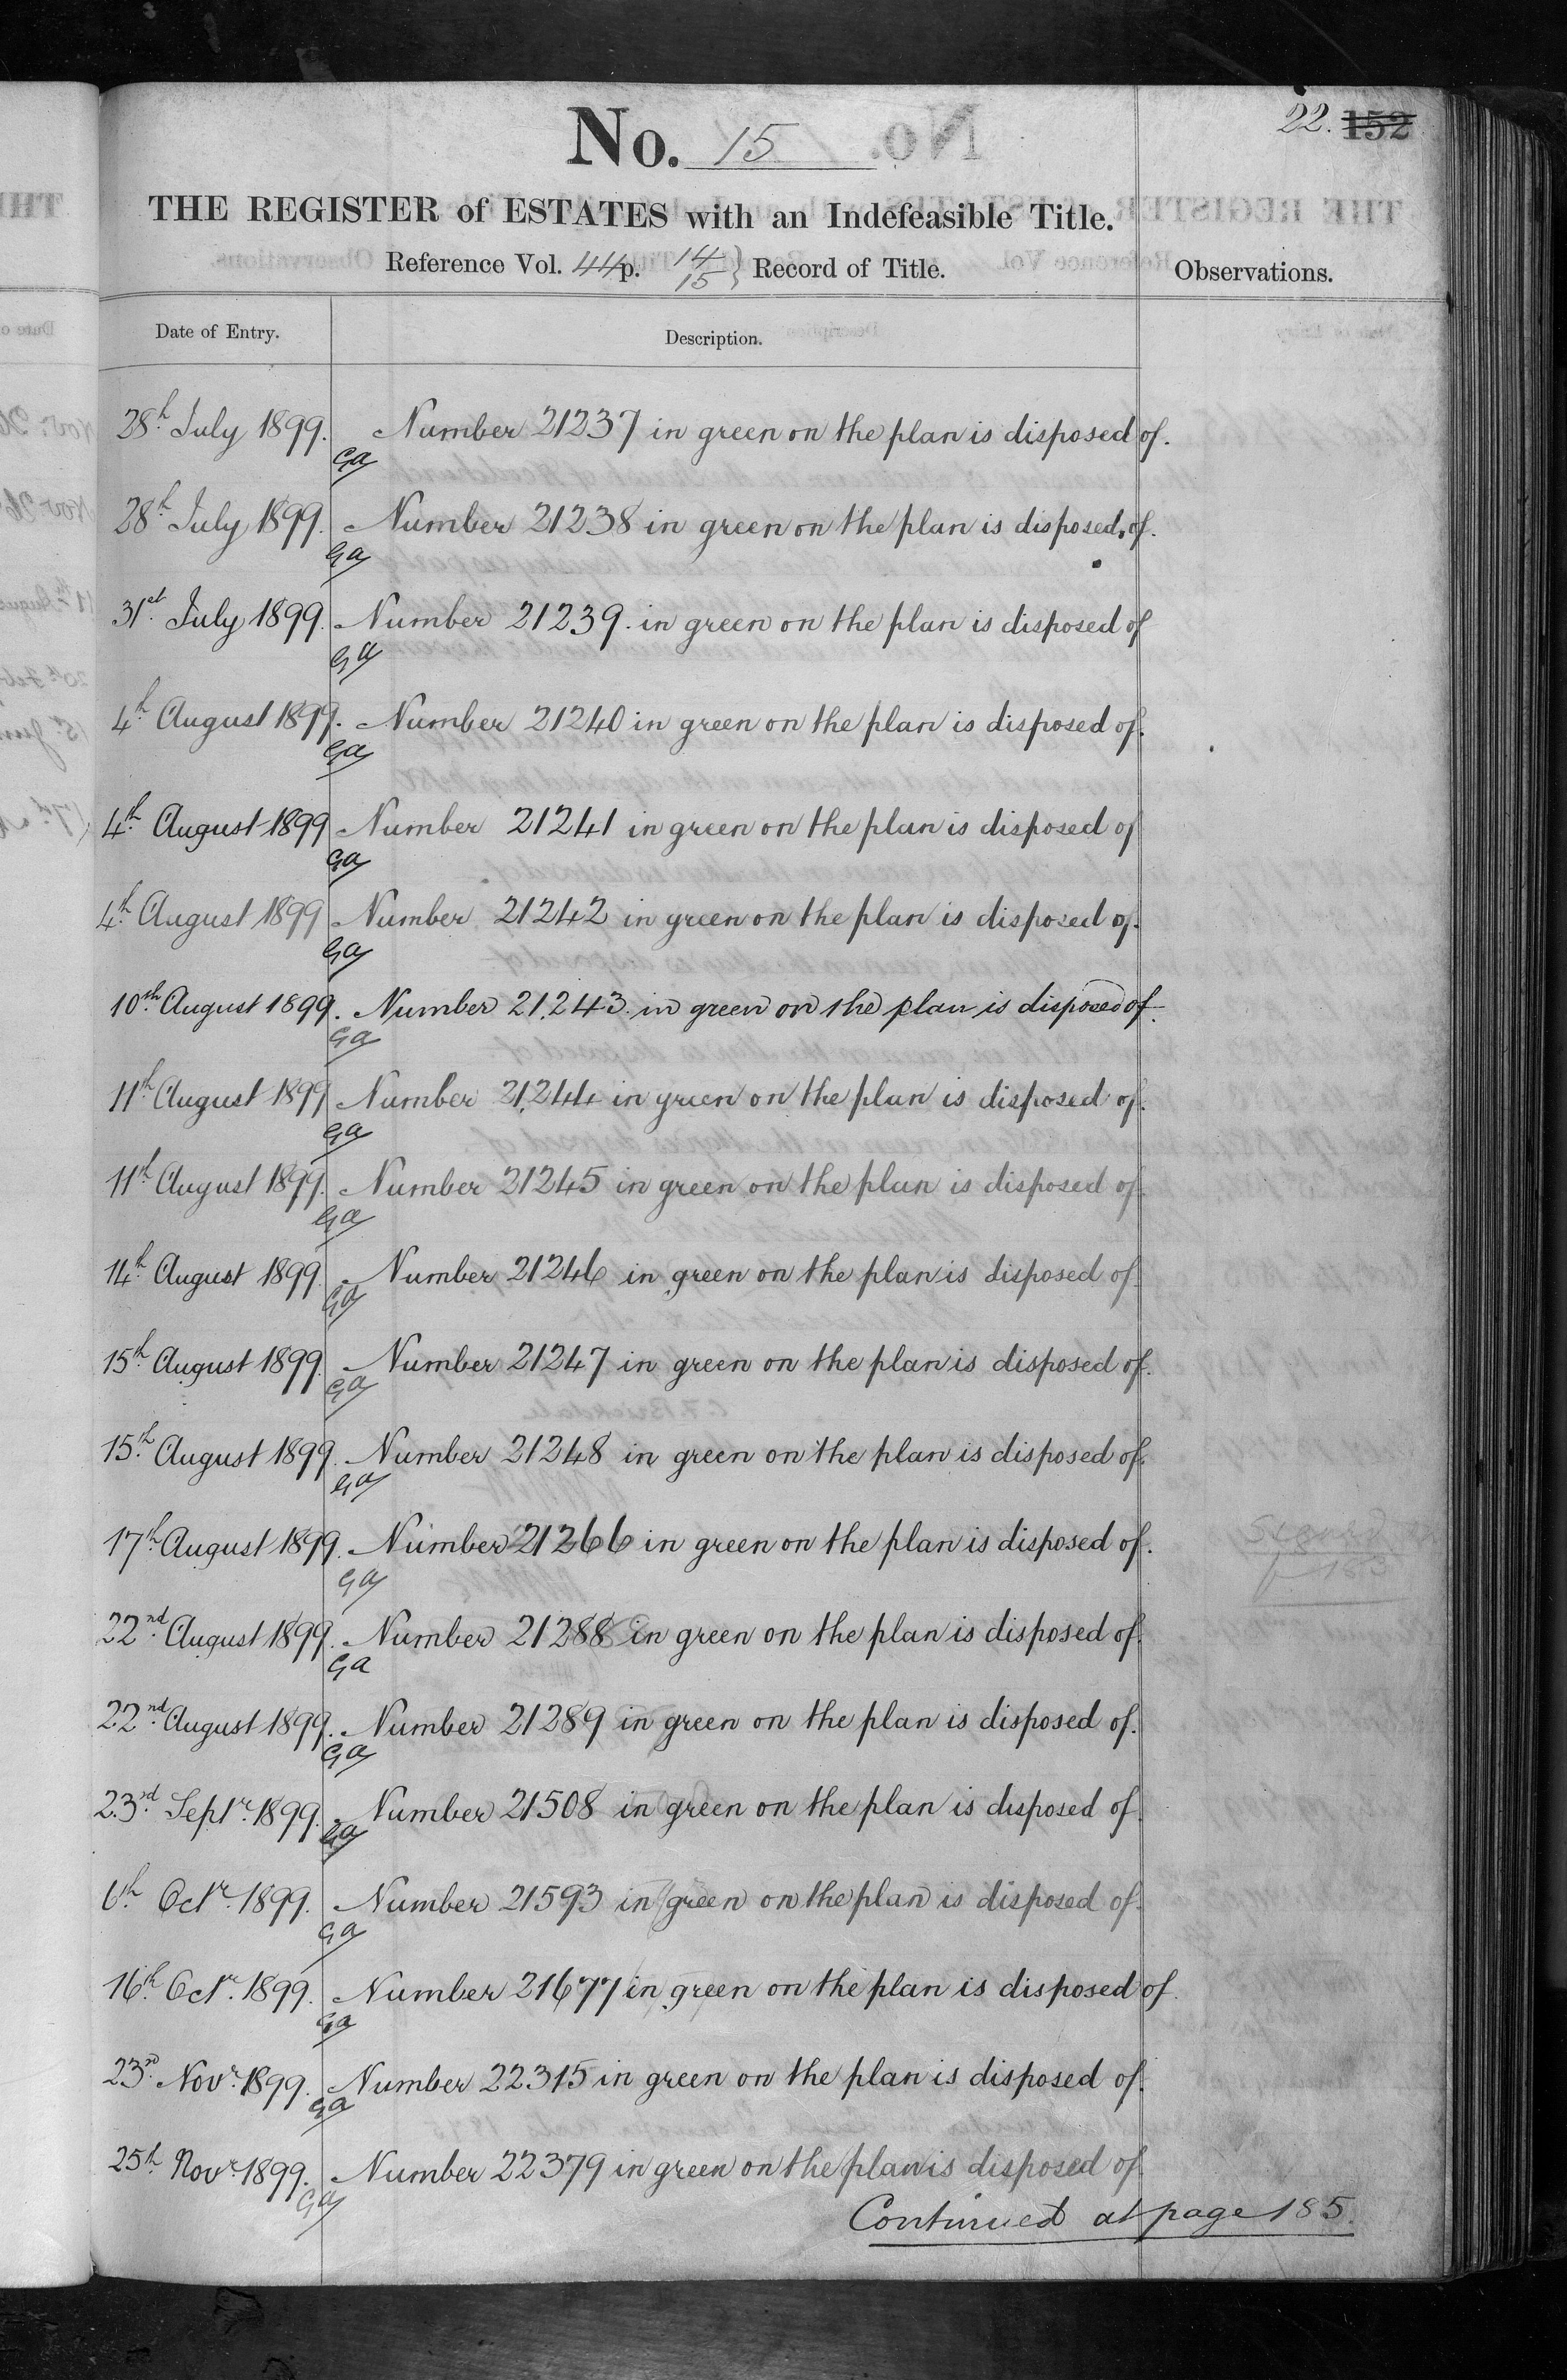 22. 152
No. 15
THE REGISTER of ESTATES with an Indefeasible Title.
Reference Vol. 44 p. 14 15 } Record of Title.
Observations.
Date of Entry.
Description.
28th July 1899. Number 21237 in green on the plan is disposed of.
Ga
28th July 1899. Number 21238 in green on the plan is disposed of.
Ga
31st July 1899. Number 21239. in green on the plan is disposed of
Ga
4th August 1899. Number 21240 in green on the plan is disposed of.
Ga
4th August 1899 Number 21241 in green on the plan is disposed of
Ga
4th August 1899 Number 21242 in green on the plan is disposed of.
Ga
10th August 1899. Number 21,243. in green on the plan is disposed of.
Ga
11th August 1899 Number 21,244 in green on the plan is disposed of.
Ga
11th August 1899. Number 21245 in green on the plan is disposed of.
Ga
14th August 1899. Number 21246 in green on the plan is disposed of.
Ga
15th August 1899. Number 21247 in green on the plan is disposed of.
Ga
15th August 1899. Number 21248 in green on the plan is disposed of.
Ga
17th August 1899. Number 21266 in green on the plan is disposed of.
Ga
22nd August 1899. Number 21288 in green on the plan is disposed of.
Ga
22nd August 1899. Number 21289 in green on the plan is disposed of.
Ga
23rd Septr. 1899. Number 21508 in green on the plan is disposed of.
Ga
6th Octr. 1899. Number 21593 in green on the plan is disposed of.
Ga
16th Octr. 1899. Number 21677 in green on the plan is disposed of.
Ga
23rd Novr. 1899. Number 22315 in green on the plan is disposed of.
Ga
25th Novr. 1899. Number 22379 in green on the plan is disposed of
Ga
Continued at page 185.